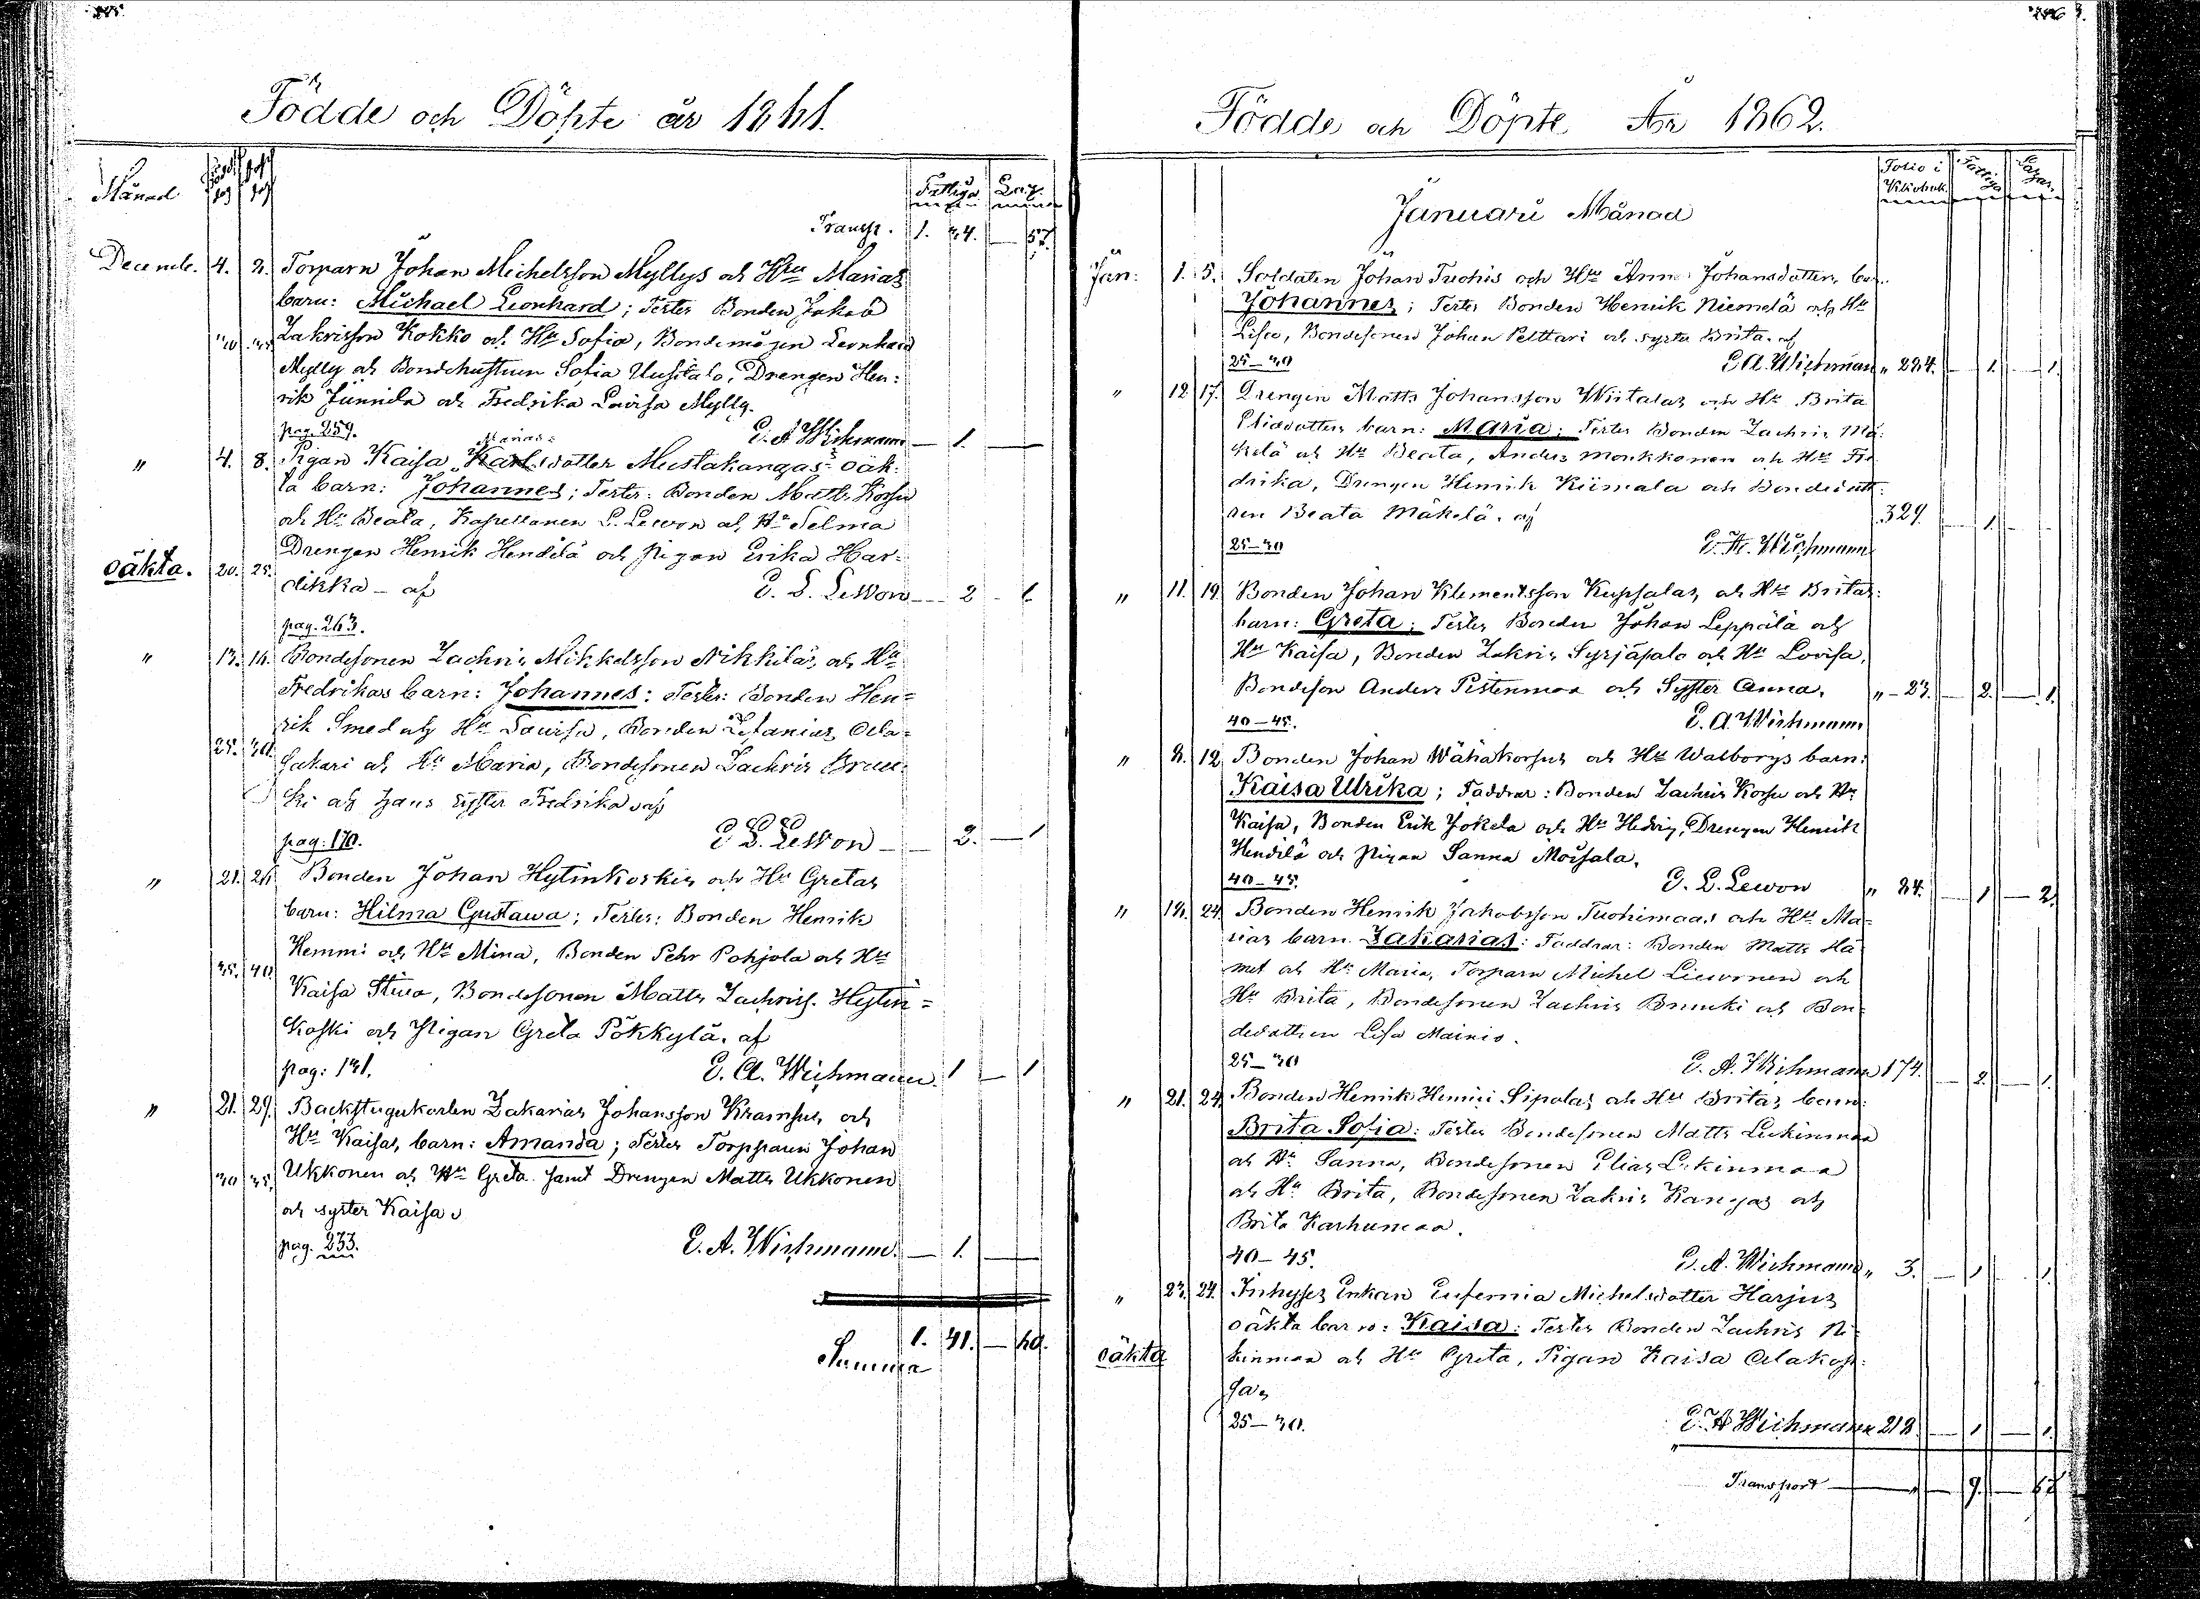 Födde och Döpte år 1861.
Månad
Fattiga
Transp. 1. 34. — 57.
Decemb. 4. 8. Torparn Johan Michelsson Myllys och Hru Marias
barn: Michael Leonhard; Tester Bonden Jakob
Zakrisson Kokko och Hu Sofia, Bondemågen Leonhard
Mylly och Bondehustrun Sofia Uusitalo, Drengen Hen:
rik Junnila och Fredrika Lovisa Mylly.
pag. 259. E. A Wichmann — 1. —
Marias
" 4. 8. Pigan Kaisa Karlsdotter Mustakangas's oäk:
ta barn: Johannes; Tester: Bonden Matts Korsu
och Hu Beata, Kapellanen L. Lewon och Hu Selma
Drengen Henrik Hendilä och Pigan Erika Har-
oäkta. 20. 25. dikka — af E. L. Lewon — 2 — 1.
pag. 263.
" 13. 16. Bondesonen Zachris Mikkelsson Nikkiläs och Hu
Fredrikas barn: Johannes: Tester: Bonden Hen=
rik Smed och Hu Lovisa, Bonden Zefanias Ala=
25. 30. Sakari och Hu Maria, Bondesonen Zachris Bruu:
ki och hans syster Fredrika af
pag: 170. E L. Lewon — 2. — 1
" 21. 26. Bonden Johan Hytinkoskis och Hu Gretas
barn: Hilma Gustawa; Tester: Bonden Henrik
Hemmi och Hu Mina, Bonden Pehr Pohjola och Hu
35. 40. Kaisa Stiva, Bondesonen Matts Zachriss. Hytin=
koski och Pigan Greta Pökkylä. af
pag: 131. E. A. Wichmann. 1 — 1
" 21. 29. Backstugukarlen Zakarias Johansson Kramsus och
Hu Kaisas, barn: Amanda; Tester Torpparn Johan
30 35. Ukkonen och Hu Greta samt Drengen Matts Ukkonen
och syster Kaisa.
pag. 233. E. A. Wichmann. — 1. —
Summa 1. 41. — 60.
Födde och Döpte År 1862.
Folio i Kyrkobok. Fattiga
Januari Månad
Jan: 1. 5. Soldaten Johan Tuohis och Hu Anna Johansdotters barn
Johannes; Tester Bonden Henrik Niemelä och Hu
Lisa, Bondesonen Johan Pelttari och syster Brita. af
25—30 E A. Wichman " 234. — 1. — 1.
" 12 17. Drengen Matts Johansson Wiitalas och Hu Brita
Eliedotters barn: Maria: Tester Bonden Zachris Mä:
kelä och Hu Beata, Anders Monkkonen och Hu Fre
drika, Drengen Henrik Kiimala och Bondedott:
ren Beata Mäkelä. af 329. — 1.
25—30 E. A. Wichmann
" 11. 19. Bonden Johan Klementsson Kupsalas, och Hu Britas
barn: Greta: Tester Bonden Johan Leppälä och
Hu Kaisa, Bonden Zakris Syrjäpalo och Hu Lovisa,
Bondeson Anders Pistenmaa och Syster Anna. " — 23. — 2. — 1.
40—45. E. A. Wichmann
" 8. 12. Bonden Johan Wähäkorsus och Hu Walborgs barn:
Kaisa Ulrika; Faddrar: Bonden Zachris Korsu och Hu
Kaisa, Bonden Erik Jokela och Hu Hedvig, Drengen Henrik
Hendilä och Pigan Sanna Moisala.
40—45. E. L. Lewon " 84. — 1 — 2.
" 19. 24. Bonden Henrik Jakobsson Tuohimaas och Hu Ma=
rias barn. Zakarias: Faddrar: Bonden Matts Hä
met och Hu Maria, Torparn Michel Liewonen och
Hu Brita, Bondesonen Zachris Bruuki och Bon=
dedottren Lisa Mainio.
25—30 E. A. Wichmann 174. — 2. — 1.
" 21. 24. Bonden Henrik Henrici Sipolas och Hu Britas barn:
Brita Sofia: Tester Bondesonen Matts Lukinmaa
och Hu Sanna, Bondesonen Elias Lukinmaa
och Hu Brita, Bondesonen Zakris Kangas och
Brita Karhumaa.
40—45. E. A. Wichmann " 3. — 1. 1.
" 23. 24. Inhyses Enkan Eufemia Michelsdotter Harjus
oäkta barn: Kaisa: Tester Bonden Zachris Ni=
oäkta kinmaa och Hu Greta, Pigan Kaisa Alakop:
sa,
25—30. E. A Wichmann 218 — 1. — 1.
Transport — 9. —